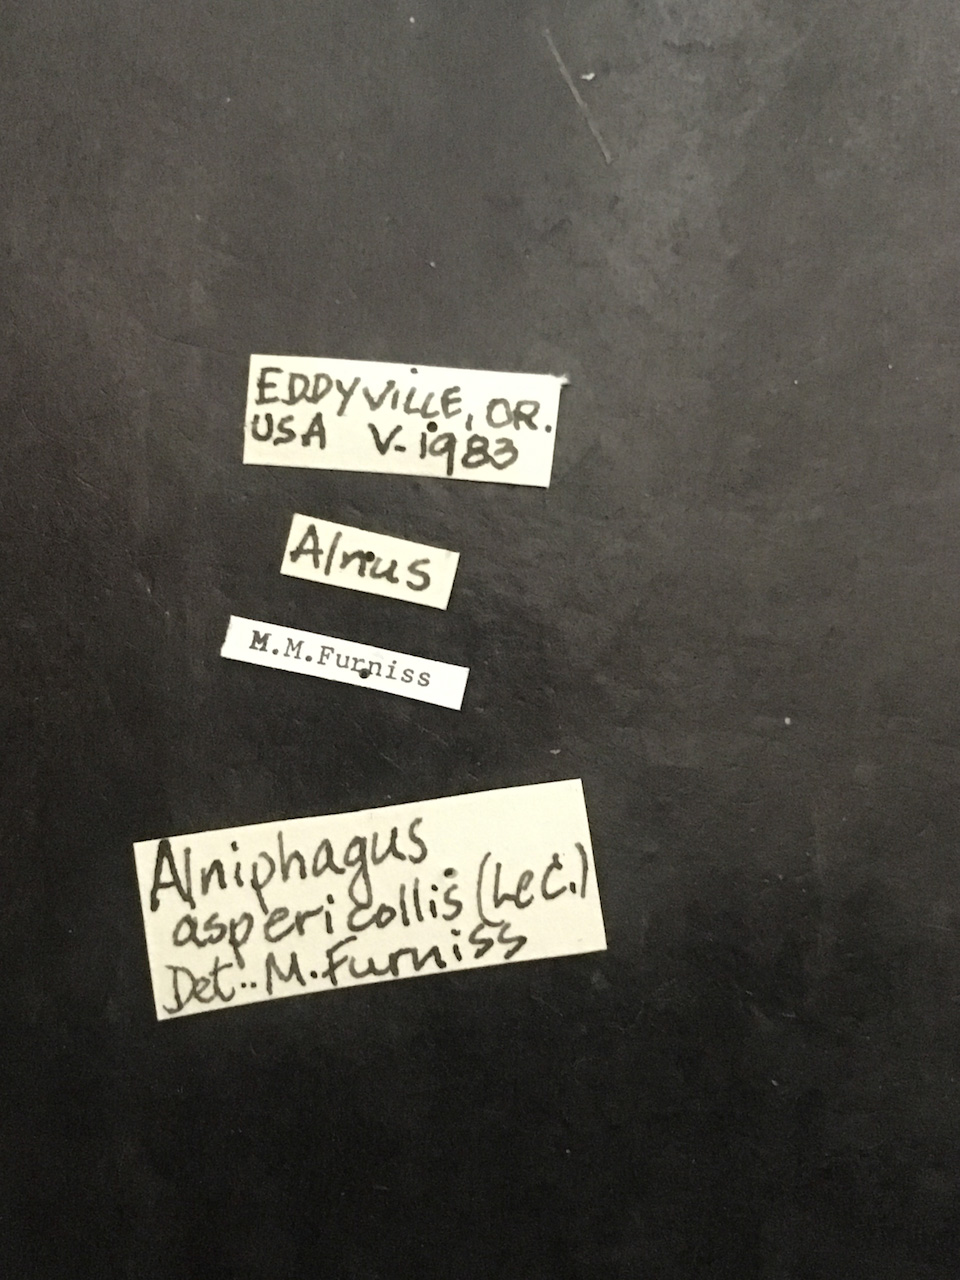 EDDYVILLE, OR.
USA V-1983
Alnus
M.M.Furniss
Alniphagus
aspericollis (Lec.)
Det.: M. Furniss